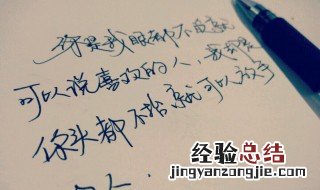 你是我眼都不眨就
可以说喜欢的人，我却是
你头都不抬就可以放手
的人.
经验总结
jingyanzongjie.com